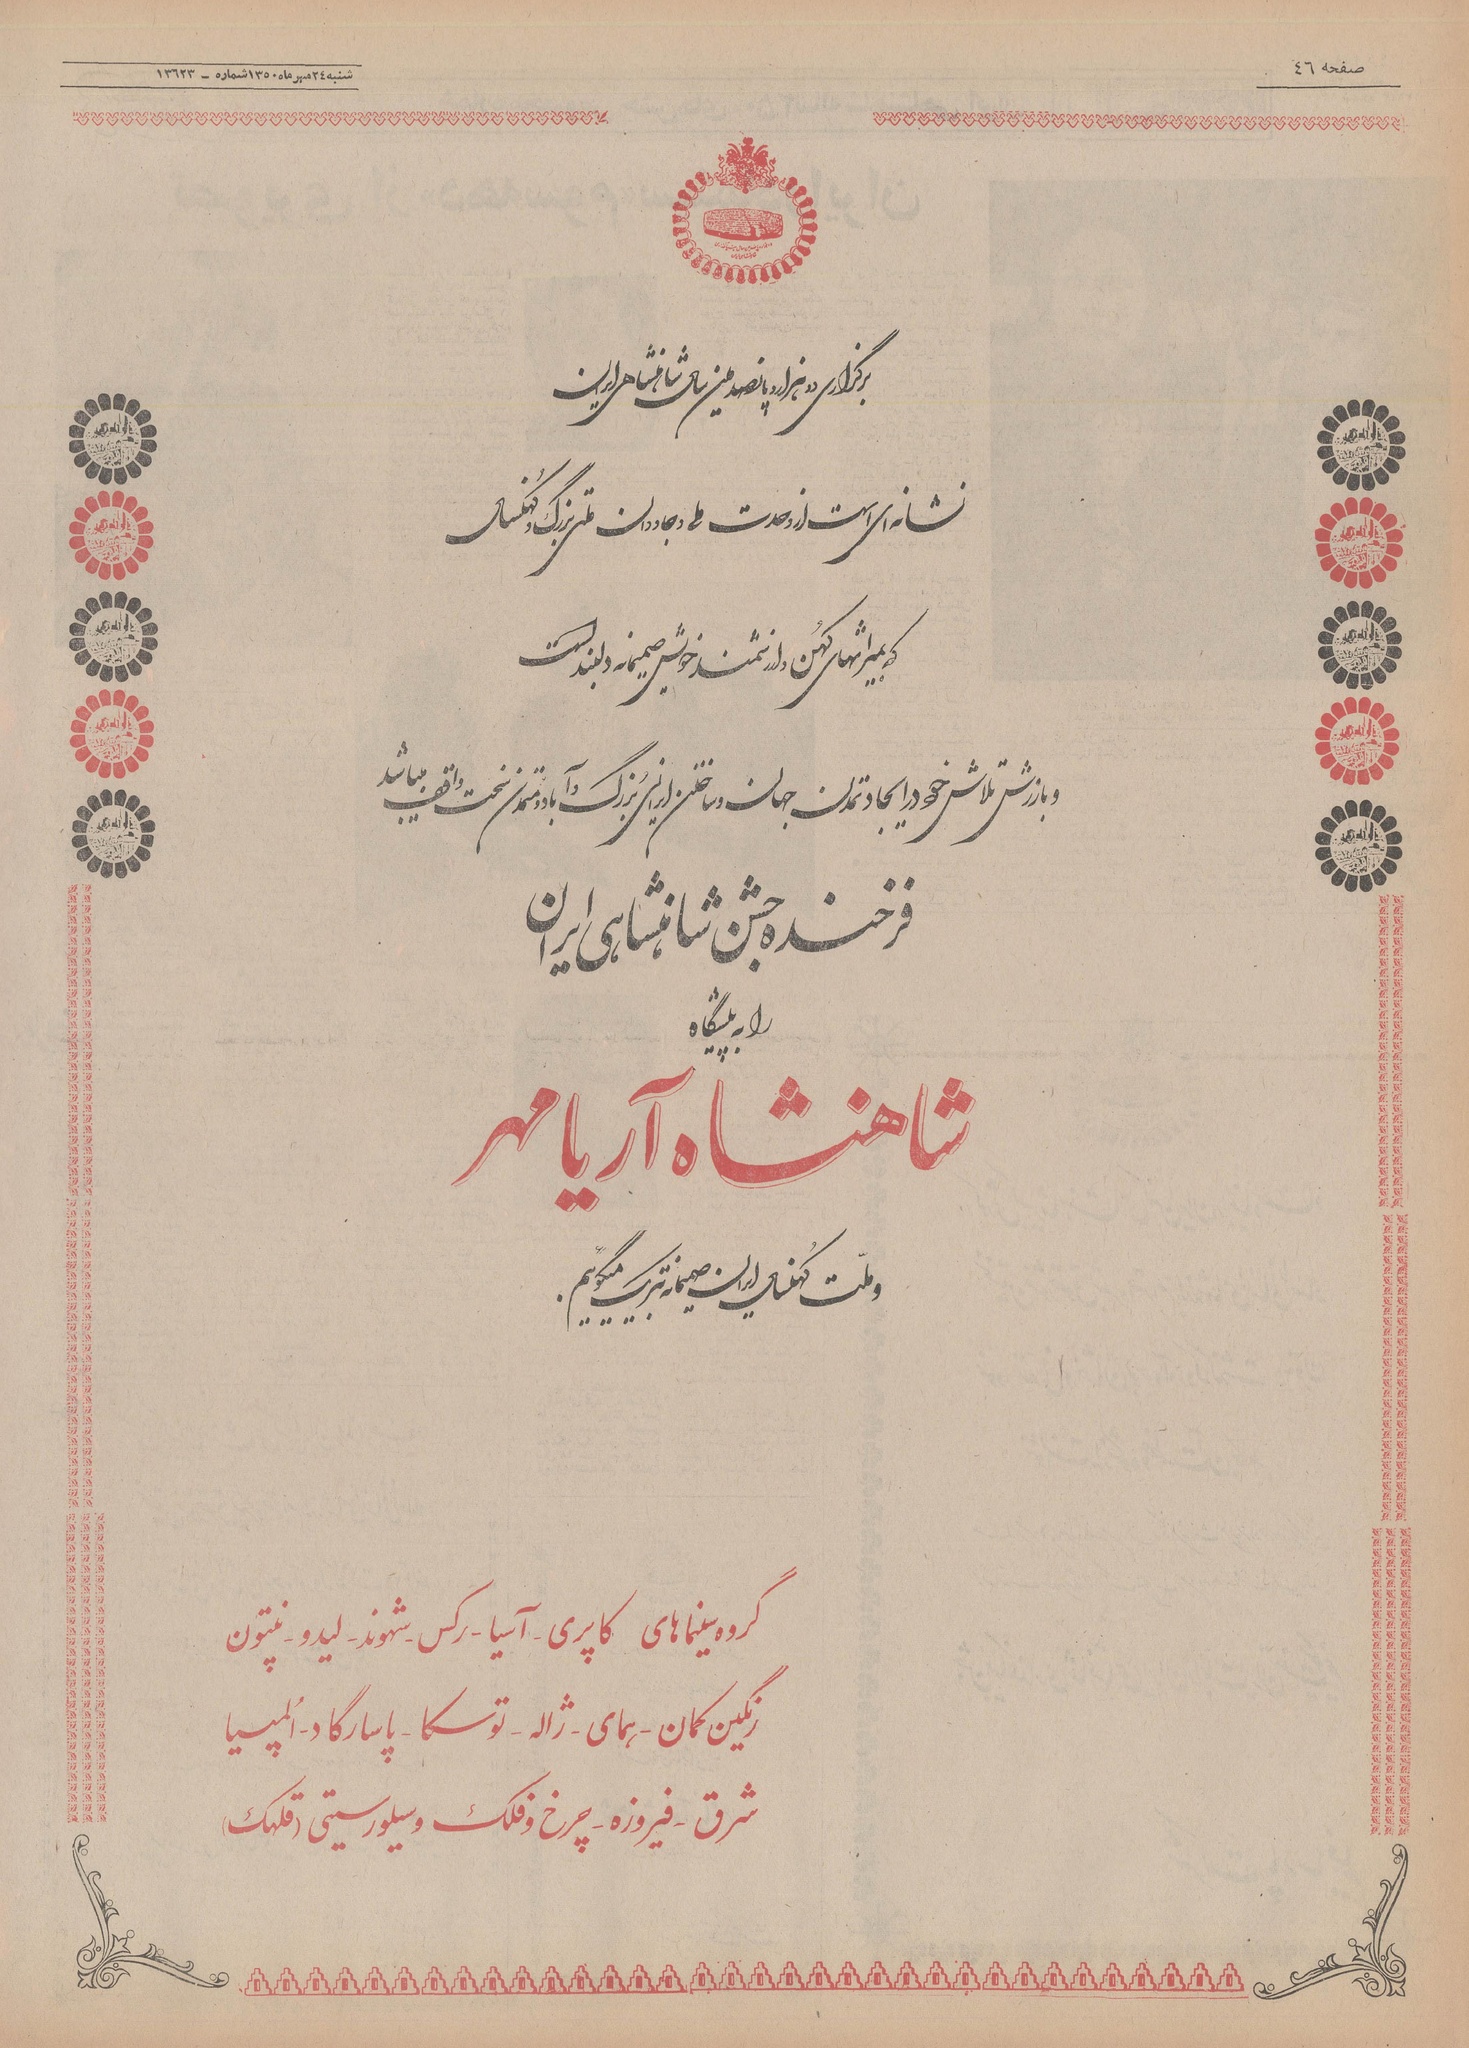 صفحه ٤٦
شنبه ٢٤ مهر ماه ١٣٥٠ شماره – ١٣٦٢٣
برگزاری دو هزار و پانصدمین سال شاهنشاهی ایران
نشانه ای است از وحدت ملی و جاودان ملتی بزرگ و کهنسال
که بمیراثهای کهن و ارزشمند خویش صمیمانه دلبند است
و بارزش تلاش خود در ایجاد تمدن جهان و ساختن ایرانی بزرگ و آباد و متمدن سخت واقف میباشد
فرخنده جشن شاهنشاهی ایران
را به پیشگاه
شاهنشاه آریامهر
و ملّت کهنسال ایران صمیمانه تبریک میگوئیم .
گروه سینماهای کاپری - آسیا - رکس - شهوند - لیدو - نپتون
رنگین کمان - همای - ژاله - توسکا - پاسارگاد - اُلمپیا
شرق - فیروزه - چرخ و فلک و سیلورسیتی (قلهک)